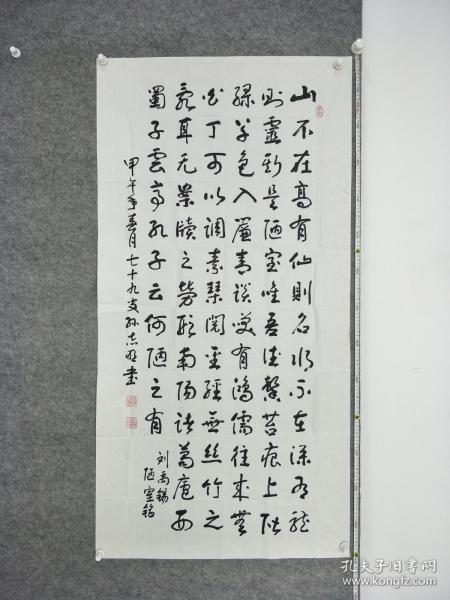 山不在高有仙則名水不在深有龙
則靈斯是陋室唯吾德馨苔痕上階
绿草色入簾青談笑有鴻儒往来無
白丁可以調素琴閲金經無丝竹之
乱耳无案牘之勞形南陽诸葛廬西
蜀子雲亭孔子云何陋之有
刘禹锡
陋室铭
甲午年春月七十九叟孙志明書
孔夫子旧书网
www.kongfz.com